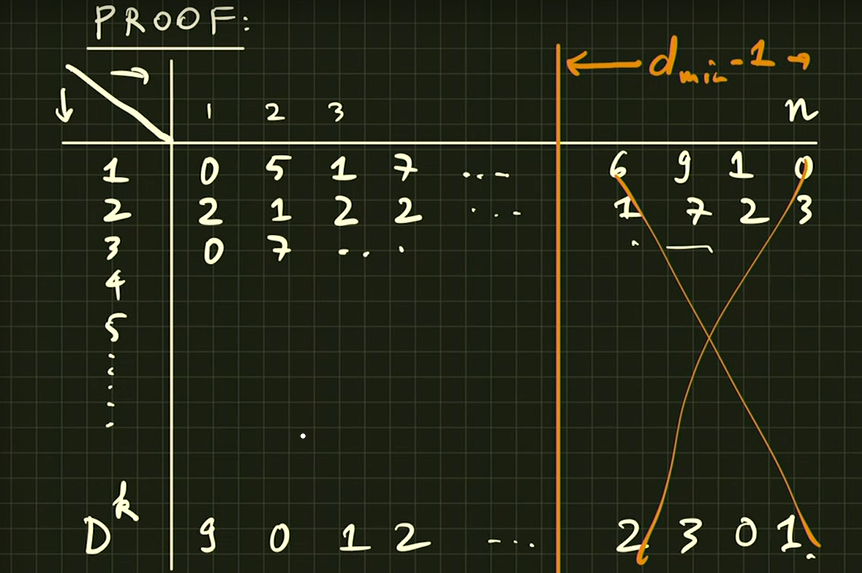 PROOF:
← d_min-1 →
→
↓ 1 2 3 n
1 0 5 1 7 ... 6 9 1 0
2 2 1 2 2 ... 1 7 2 3
3 0 7 ...
4
5
D^k 9 0 1 2 ... 2 3 0 1